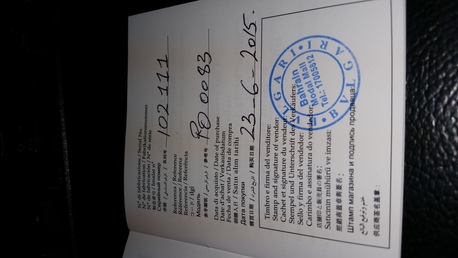 N° di fabbricazione / Serial No.
N° de fabrication / Fabrikationsnummer
N° de fabricación / N° de série
製造番号 / İmalat n°
Серийный номер
102111
Referenza / Reference
Référence / Referenz
Referencia / Referência
コード / ilgi
Модель
PO 0083
Data di acquisto / Date of purchase
Date d'achat / Verkaufsdatum
Fecha de venta / Data de compra
購入日 / Satın alım tarihi
Дата покупки
23-6-2015.
Timbro e firma del venditore:
Stamp and signature of vendor:
Cachet et signature du vendeur:
Stempel und Unterschrift des Verkäufers:
Sello y firma del vendedor:
Carimbo e assinatura do vendedor:
店舗印と販売員の署名:
Satıcının mühürü ve imzası:
Штамп магазина и подпись продавца:
ختم وتوقيع البائع
供应商签名盖章:
BVLGARI
Bahrain
Modal Mall
Tel.: 17005812
BVLGARI